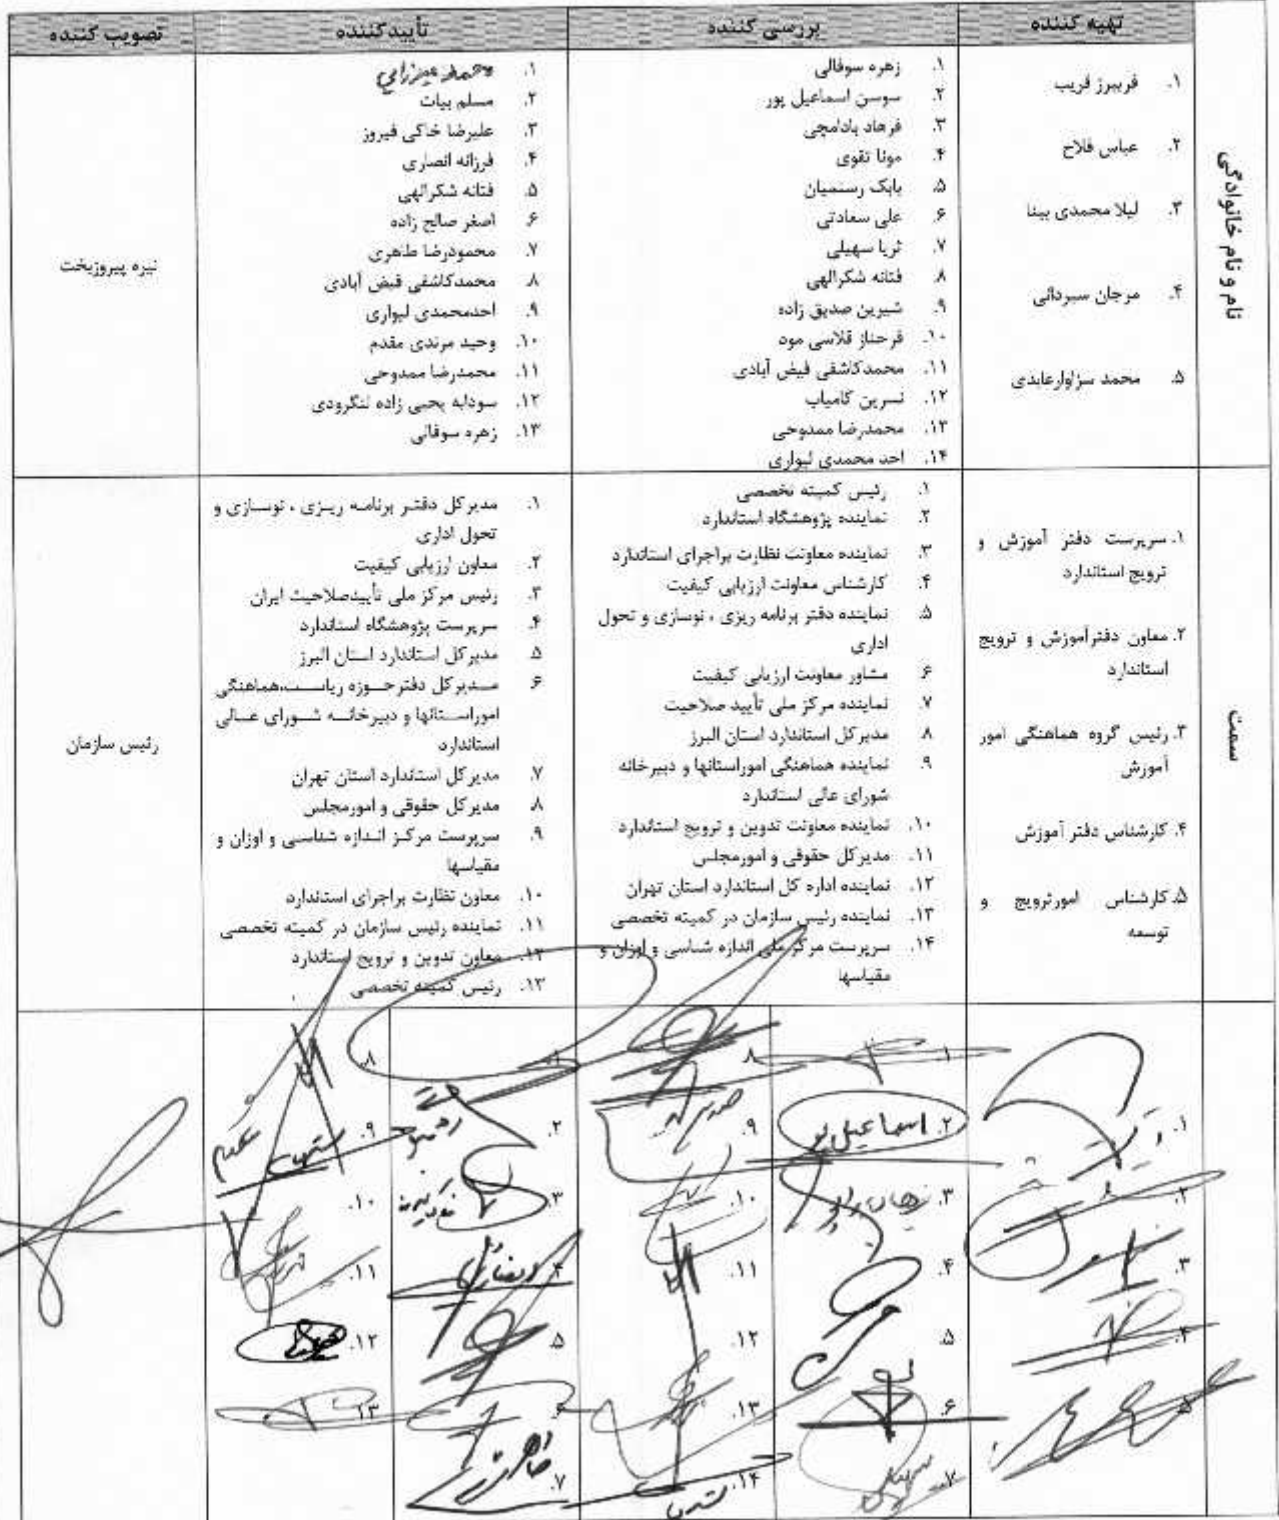 تهیه کننده
بررسی کننده
تأییدکننده
تصویب کننده
نام و نام خانوادگی
۱. فریبرز قریب
۲. عباس فلاح
۳. لیلا محمدی بینا
۴. مرجان سبردانی
۵. محمد سزاوارعابدی
۱. زهره سوفالی
۲. سوسن اسماعیل پور
۳. فرهاد بادامچی
۴. مونا تقوی
۵. بابک رستمیان
۶. علی سعادتی
۷. ثریا سهیلی
۸. فتانه شکرالهی
۹. شیرین صدیق زاده
۱۰. فرحناز قلاسی مود
۱۱. محمدکاشفی فیض آبادی
۱۲. نسرین کامیاب
۱۳. محمدرضا ممدوحی
۱۴. احد محمدی لیواری
۱. محمد میرزایی
۲. مسلم بیات
۳. علیرضا خاکی فیروز
۴. فرزانه انصاری
۵. فتانه شکرالهی
۶. اصغر صالح زاده
۷. محمودرضا طاهری
۸. محمدکاشفی فیض آبادی
۹. احدمحمدی لیواری
۱۰. وحید مرندی مقدم
۱۱. محمدرضا ممدوحی
۱۲. سودابه یحیی زاده لنگرودی
۱۳. زهره سوفالی
نیره پیروزبخت
سمت
۱. سرپرست دفتر آموزش و
ترویج استاندارد
۲. معاون دفترآموزش و ترویج
استاندارد
۳. رئیس گروه هماهنگی امور
آموزش
۴. کارشناس دفتر آموزش
۵. کارشناس امورترویج و
توسعه
۱. رئیس کمیته تخصصی
۲. نماینده پژوهشگاه استاندارد
۳. نماینده معاونت نظارت براجرای استاندارد
۴. کارشناس معاونت ارزیابی کیفیت
۵. نماینده دفتر برنامه ریزی ، نوسازی و تحول
اداری
۶. مشاور معاونت ارزیابی کیفیت
۷. نماینده مرکز ملی تأیید صلاحیت
۸. مدیرکل استاندارد استان البرز
۹. نماینده هماهنگی اموراستانها و دبیرخانه
شورای عالی استاندارد
۱۰. نماینده معاونت تدوین و ترویج استاندارد
۱۱. مدیرکل حقوقی و امورمجلس
۱۲. نماینده اداره کل استاندارد استان تهران
۱۳. نماینده رئیس سازمان در کمیته تخصصی
۱۴. سرپرست مرکز ملی اندازه شناسی و اوزان و
مقیاسها
۱. مدیرکل دفتر برنامه ریزی ، نوسازی و
تحول اداری
۲. معاون ارزیابی کیفیت
۳. رئیس مرکز ملی تأییدصلاحیت ایران
۴. سرپرست پژوهشگاه استاندارد
۵. مدیرکل استاندارد استان البرز
۶. مدیرکل دفترحوزه ریاست،هماهنگی
اموراستانها و دبیرخانه شورای عالی
استاندارد
۷. مدیرکل استاندارد استان تهران
۸. مدیرکل حقوقی و امورمجلس
۹. سرپرست مرکز اندازه شناسی و اوزان و
مقیاسها
۱۰. معاون نظارت براجرای استاندارد
۱۱. نماینده رئیس سازمان در کمیته تخصصی
۱۲. معاون تدوین و ترویج استاندارد
۱۳. رئیس کمیته تخصصی
رئیس سازمان
۱.
۲.
۳.
۴.
۵.
۱.
۲. اسماعیل پور
۳.
۴.
۵.
۶.
۷. سهیلی
۸.
۹.
۱۰.
۱۱.
۱۲.
۱۳.
۱۴.
۱.
۲.
۳.
۴. انصاری
۵.
۶.
۷. طاهری
۸.
۹.
۱۰.
۱۱.
۱۲.
۱۳.